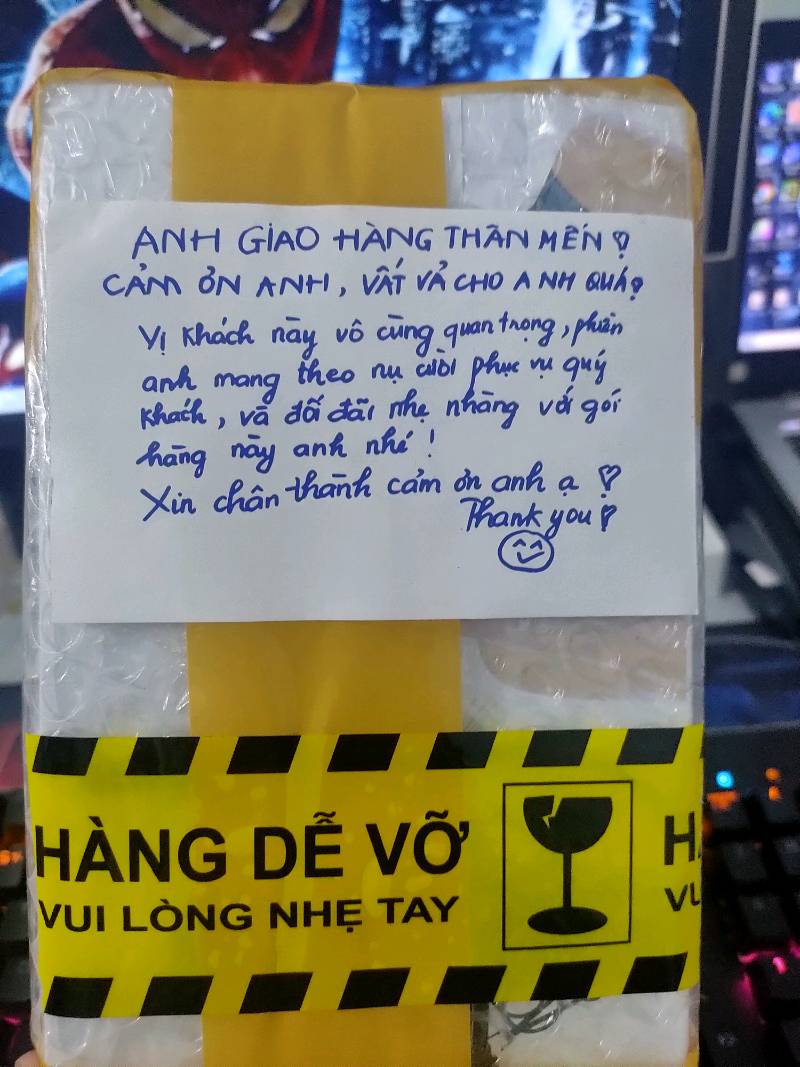 ANH GIAO HÀNG THÂN MẾN
CẢM ƠN ANH, VẤT VẢ CHO ANH QUÁ
Vị khách này vô cùng quan trọng, phiền
anh mang theo nụ cười phục vụ quý
khách, và đối đãi nhẹ nhàng với gói
hàng này anh nhé!
Xin chân thành cảm ơn anh ạ
Thank you
HÀNG DỄ VỠ
VUI LÒNG NHẸ TAY